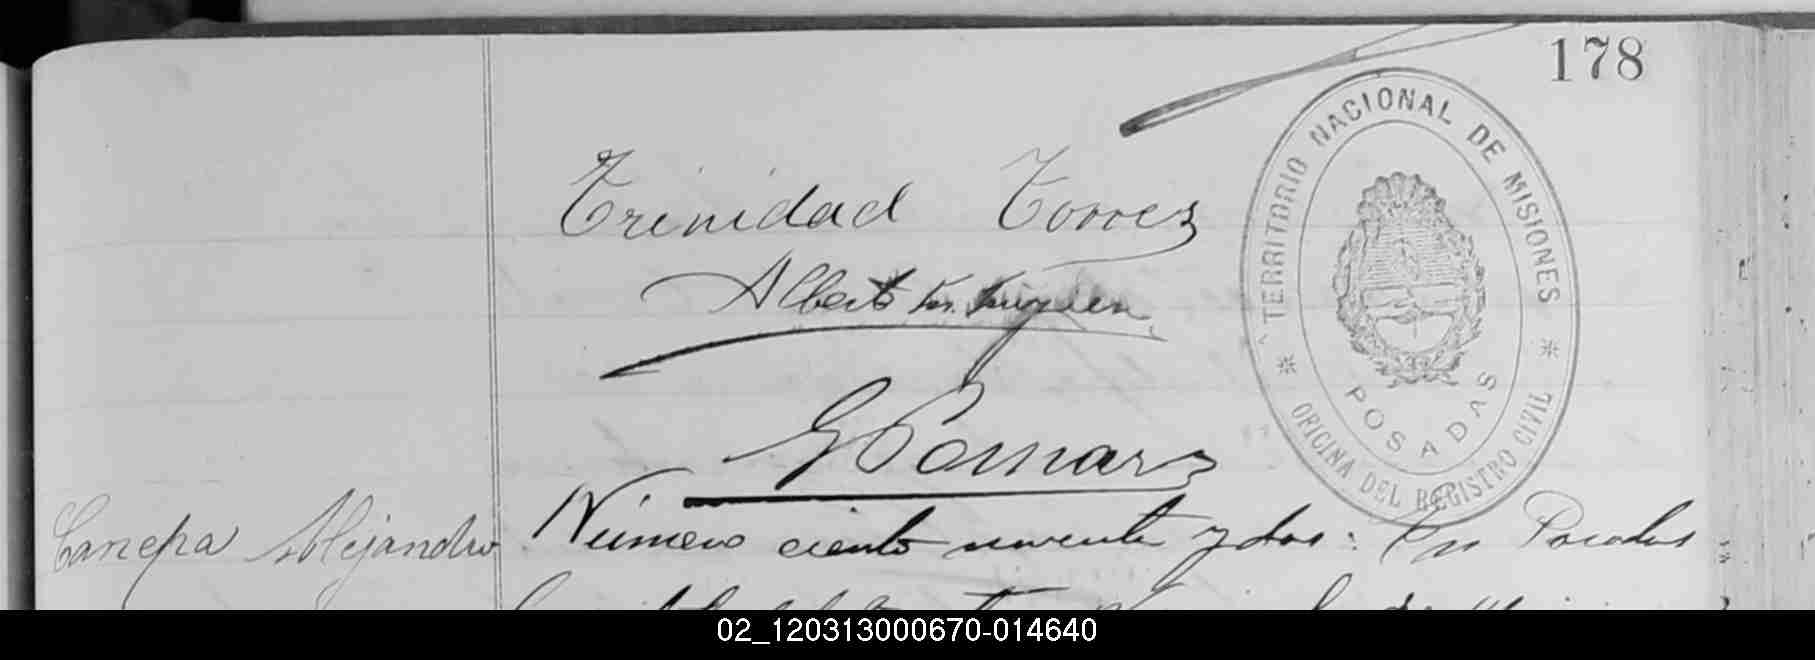 178
TERRITORIO NACIONAL DE MISIONES
OFICINA DEL REGISTRO CIVIL
POSADAS
Trinidad Torres
Alberto
G Pomar
Canepa Alejandro
Número ciento noventa y dos: En Posadas
02_120313000670-014640